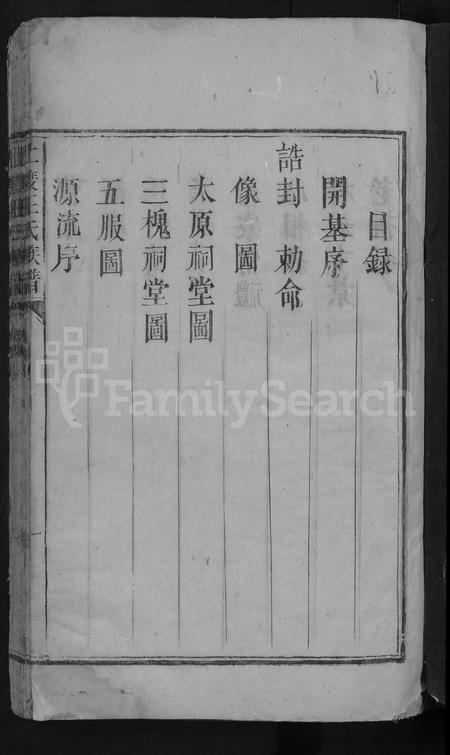 目錄
開基序
誥封勅命
像圖
太原祠堂圖
三槐祠堂圖
五服圖
源流序
王氏族譜
FamilySearch